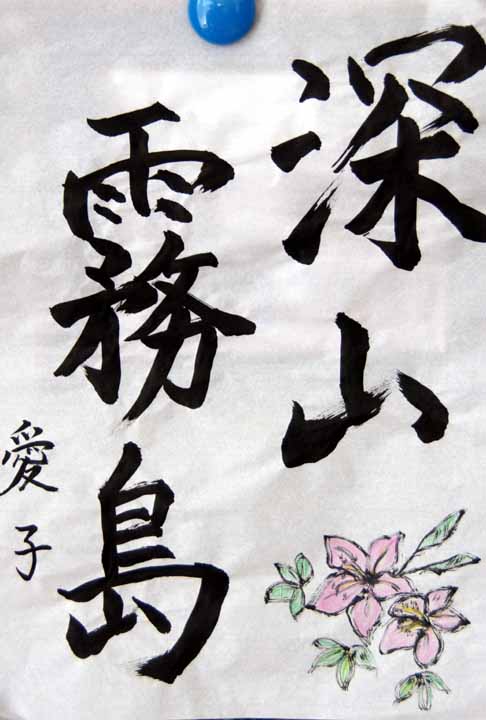 深山
霧島
愛子